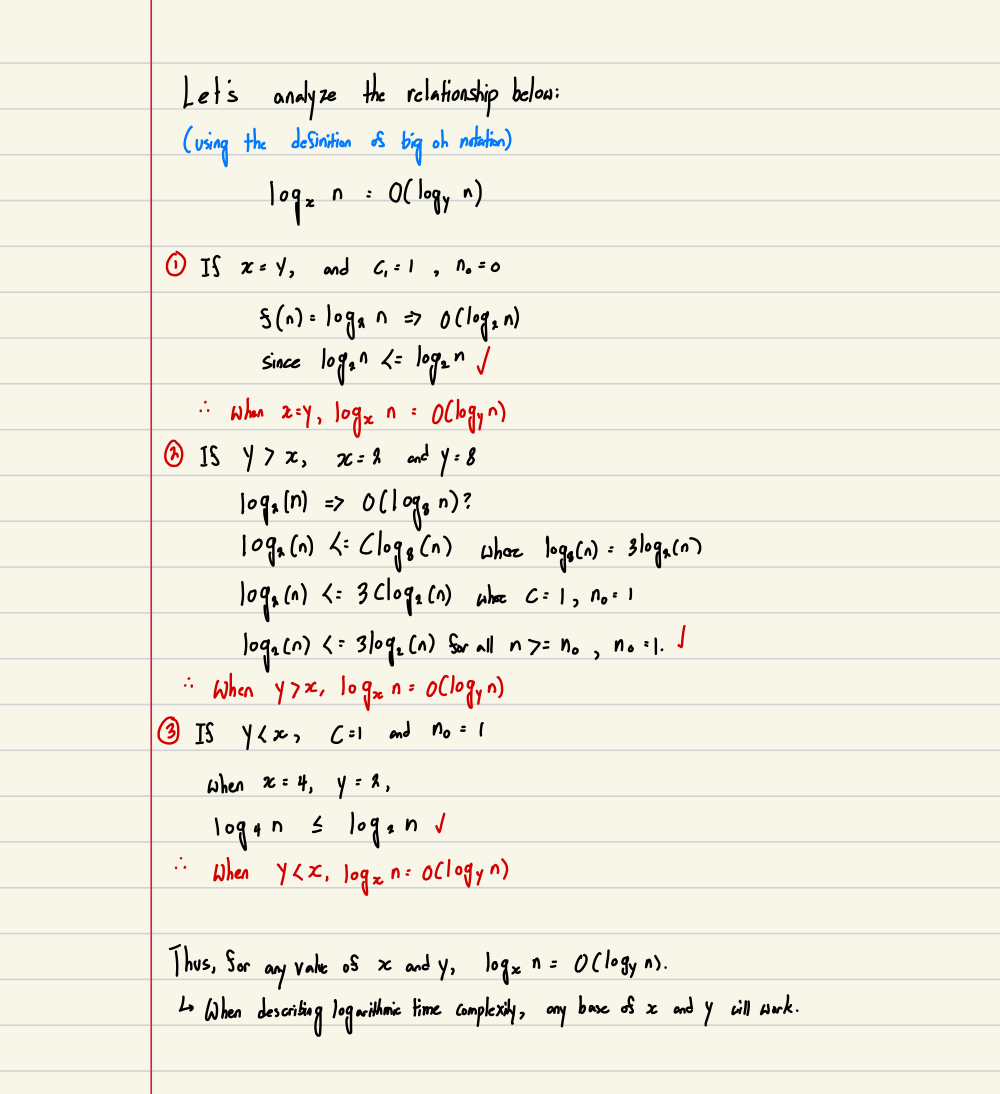 Let's analyze the relationship below:
(using the definition of big oh notation)
logₓ n = O(log_y n)
① If x = y, and C₁ = 1, n₀ = 0
f(n) = log₂ n => O(log₂ n)
since log₂ n <= log₂ n ✓
∴ When x=y, logₓ n = O(log_y n)
② If y > x, x = 2 and y = 8
log₂(n) => O(log₈ n)?
log₂(n) <= C log₈(n) where log₈(n) = 3log₂(n)
log₂(n) <= 3C log₂(n) where C = 1, n₀ = 1
log₂(n) <= 3log₂(n) for all n >= n₀, n₀ = 1. ✓
∴ When y > x, logₓ n = O(log_y n)
③ If y < x, C = 1 and n₀ = 1
when x = 4, y = 2,
log₄ n ≤ log₂ n ✓
∴ When y < x, logₓ n = O(log_y n)
Thus, for any value of x and y, logₓ n = O(log_y n).
↳ When describing logarithmic time complexity, any base of x and y will work.